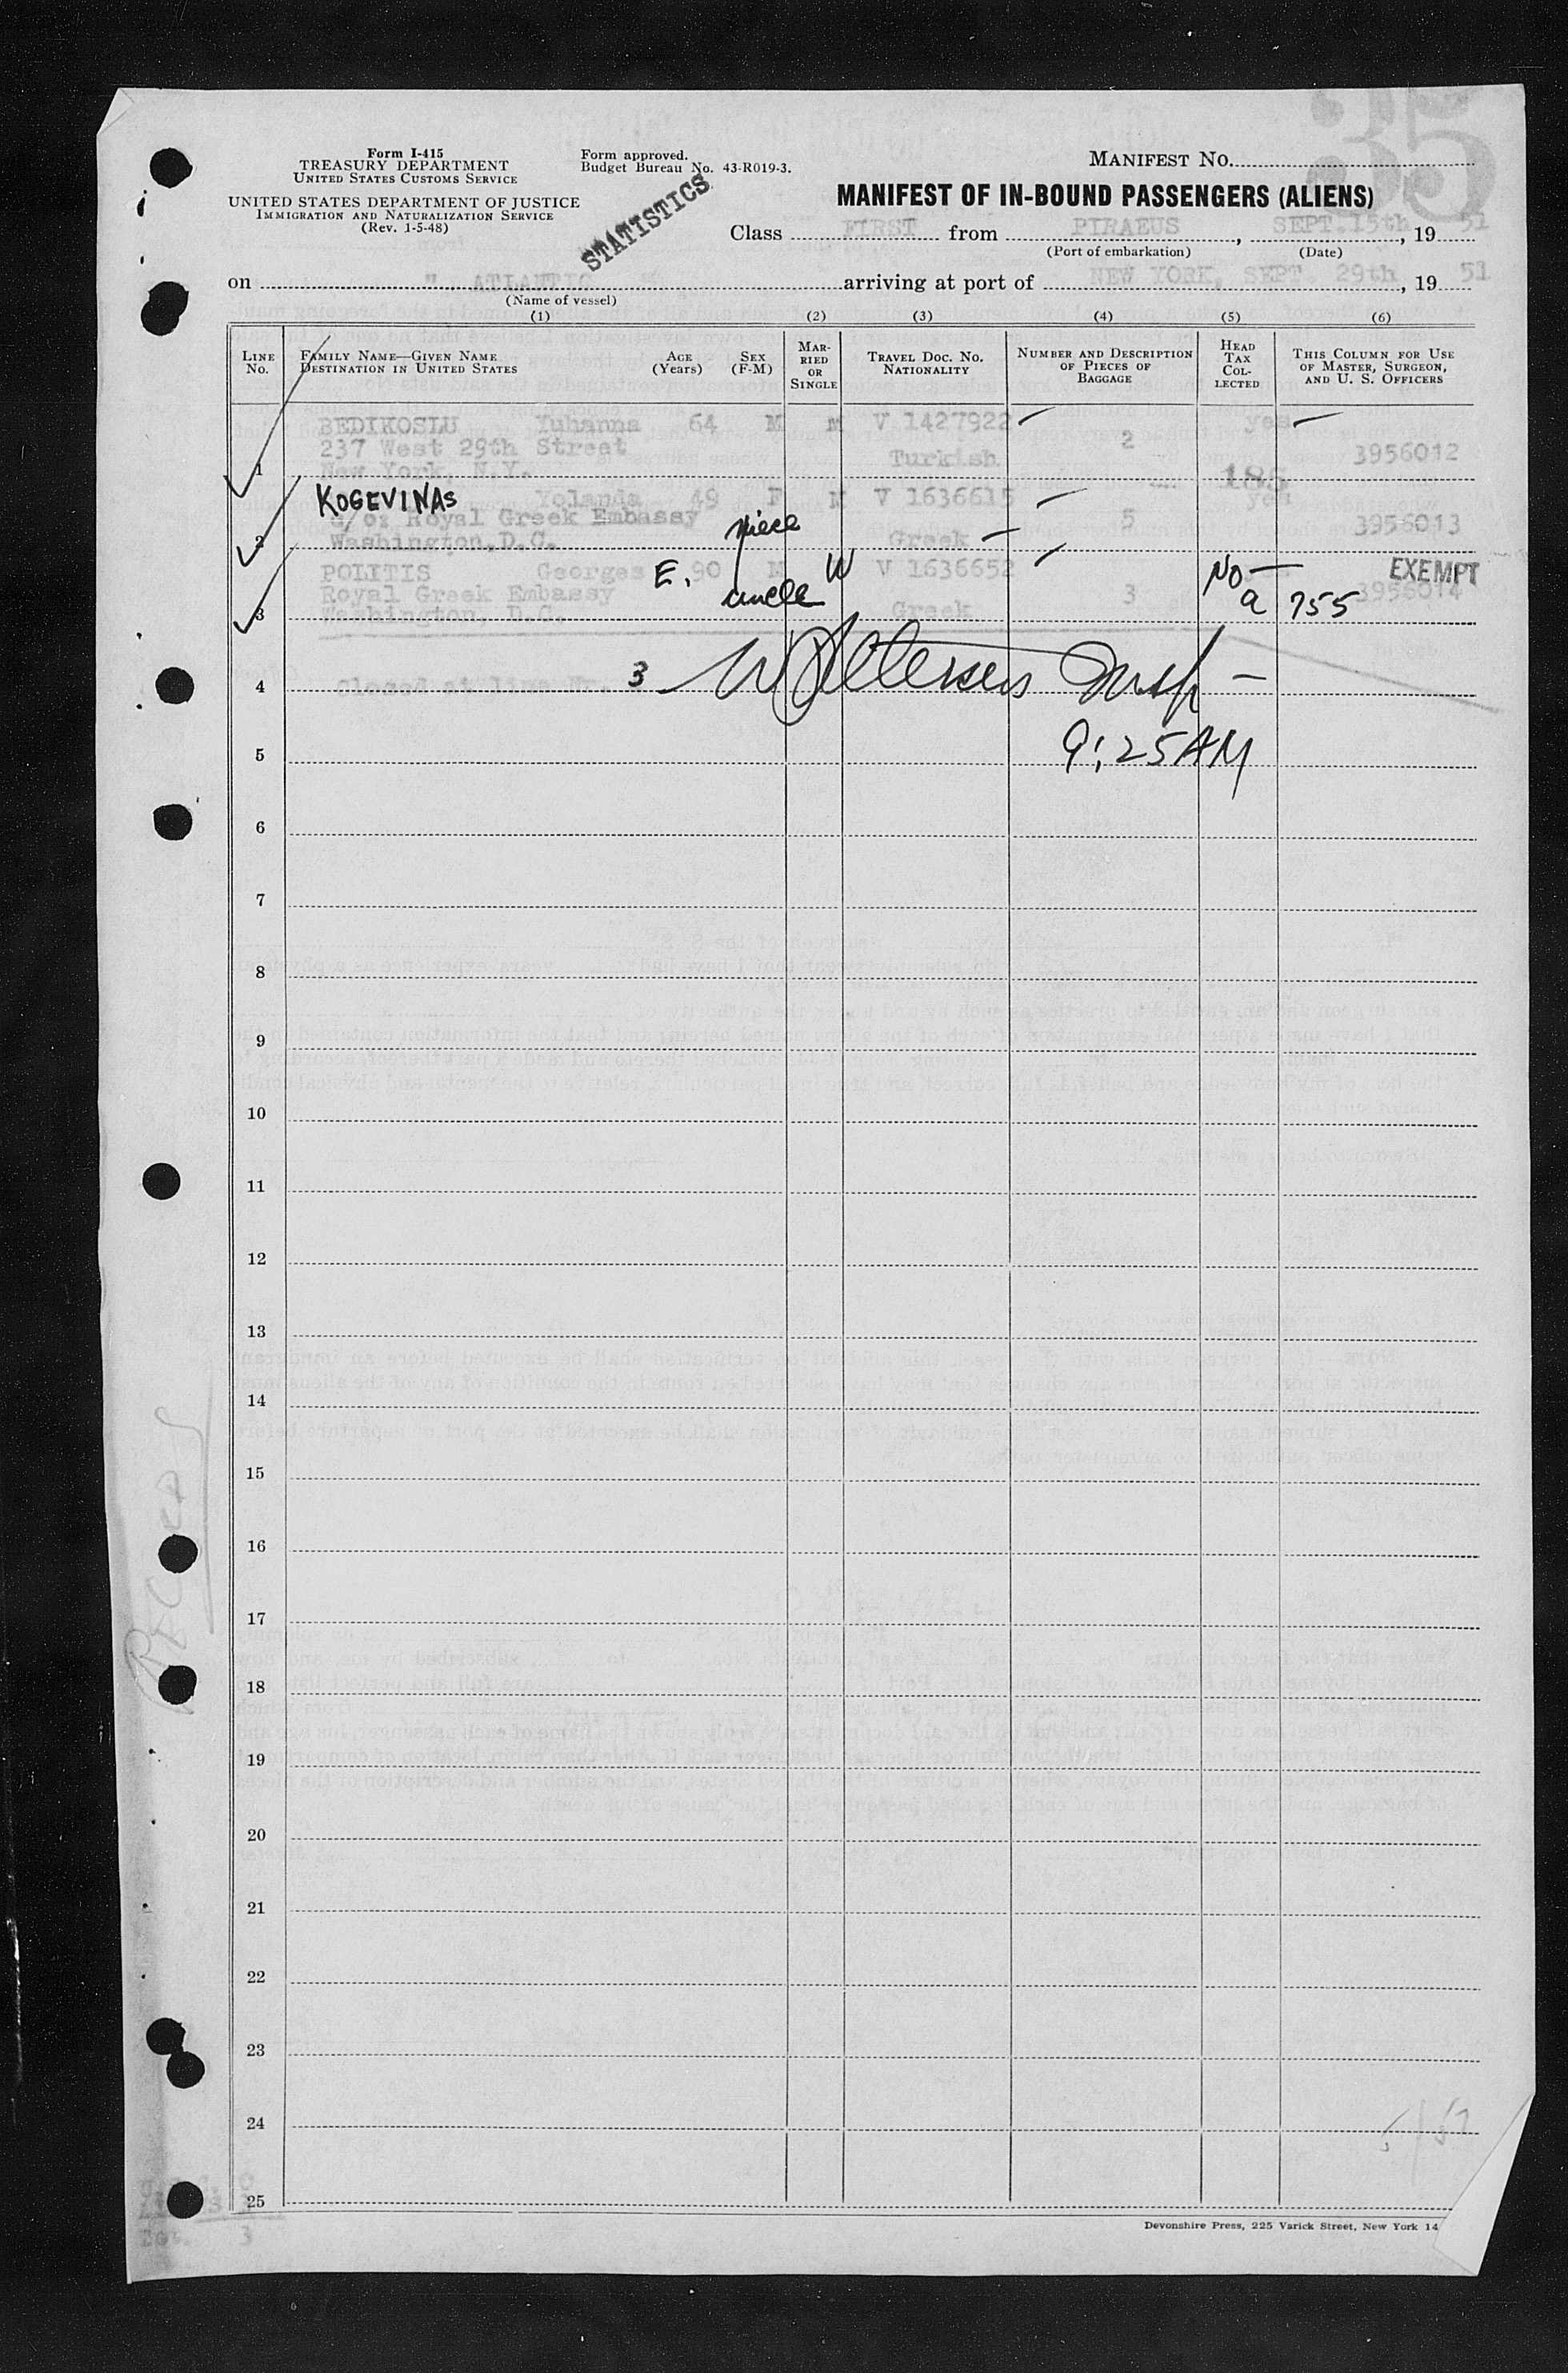 35
Form I-415
TREASURY DEPARTMENT
UNITED STATES CUSTOMS SERVICE
UNITED STATES DEPARTMENT OF JUSTICE
IMMIGRATION AND NATURALIZATION SERVICE
(Rev. 1-5-48)
Form approved.
Budget Bureau No. 43-R019-3.
STATISTICS
MANIFEST NO.
MANIFEST OF IN-BOUND PASSENGERS (ALIENS)
Class FIRST from PIRAEUS, SEPT.15th, 19 51
(Port of embarkation) (Date)
on " ATLANTIC " arriving at port of NEW YORK, SEPT. 29th, 19 51
(Name of vessel)
(1) (2) (3) (4) (5) (6)
LINE No. FAMILY NAME—GIVEN NAME DESTINATION IN UNITED STATES AGE (Years) SEX (F-M) MARRIED OR SINGLE TRAVEL DOC. NO. NATIONALITY NUMBER AND DESCRIPTION OF PIECES OF BAGGAGE HEAD TAX COLLECTED THIS COLUMN FOR USE OF MASTER, SURGEON, AND U. S. OFFICERS
BEDIKOSLU Yuhanna 64 M M V 1427922 yes
237 West 29th Street 2 3956012
1 New York, N.Y. Turkish 186
KOGEVINAS Yolanda 49 F M V 1636615 yes
c/o: Royal Greek Embassy niece 5 3956013
2 Washington,D.C. Greek
POLITIS Georges E. 90 M W V 1636652 No EXEMPT
Royal Greek Embassy uncle 3 a 755 3956014
3 Washington, D.C. Greek
4 Closed at line Nr. 3 Insp
5 9:25 AM
6
7
8
9
10
11
12
13
14
15
16
17
18
19
20
21
22
23
24
25
3
Devonshire Press, 225 Varick Street, New York 14